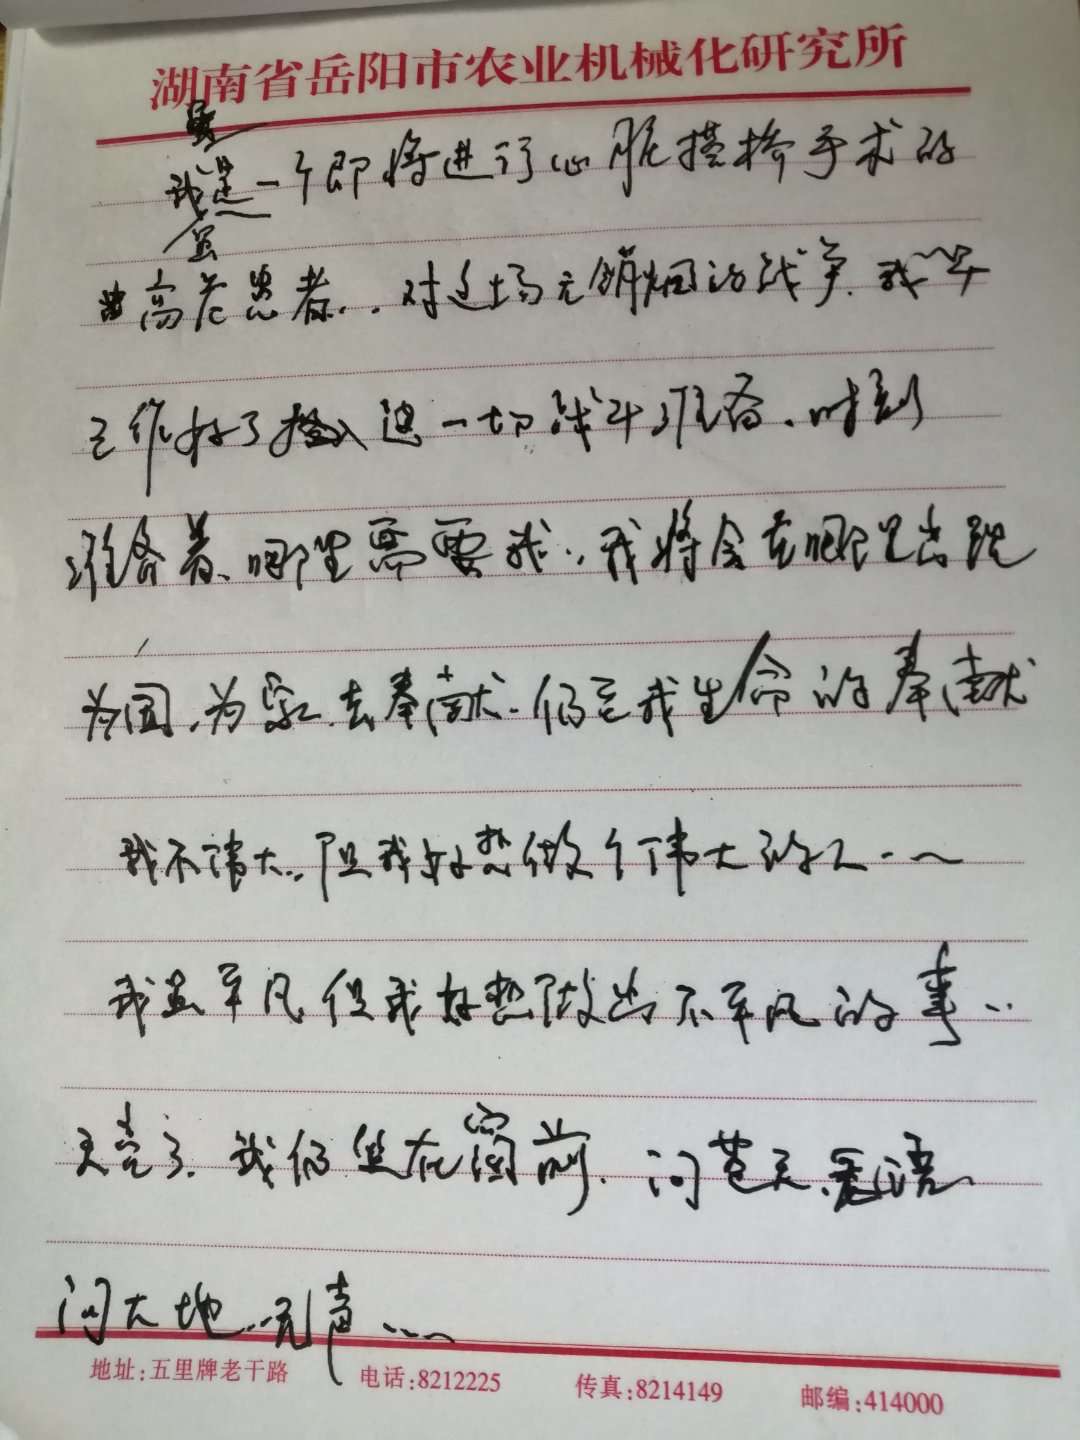 湖南省岳阳市农业机械化研究所
虽
我是一个即将进行心脏搭桥手术的
高危患者..对这场无硝烟的战争.我早
已作好了投入这一切战斗准备、时刻
准备着、哪里需要我..我将会在哪里出现
为国,为家.去奉献.仍至我生命的奉献
我不伟大..但我好想做个伟大的人...
我虽平凡但我好想做出不平凡的事..
天亮了.我仍坐在窗前.问苍天.无语
问大地..无声....
地址:五里牌老干路 电话:8212225 传真:8214149 邮编:414000